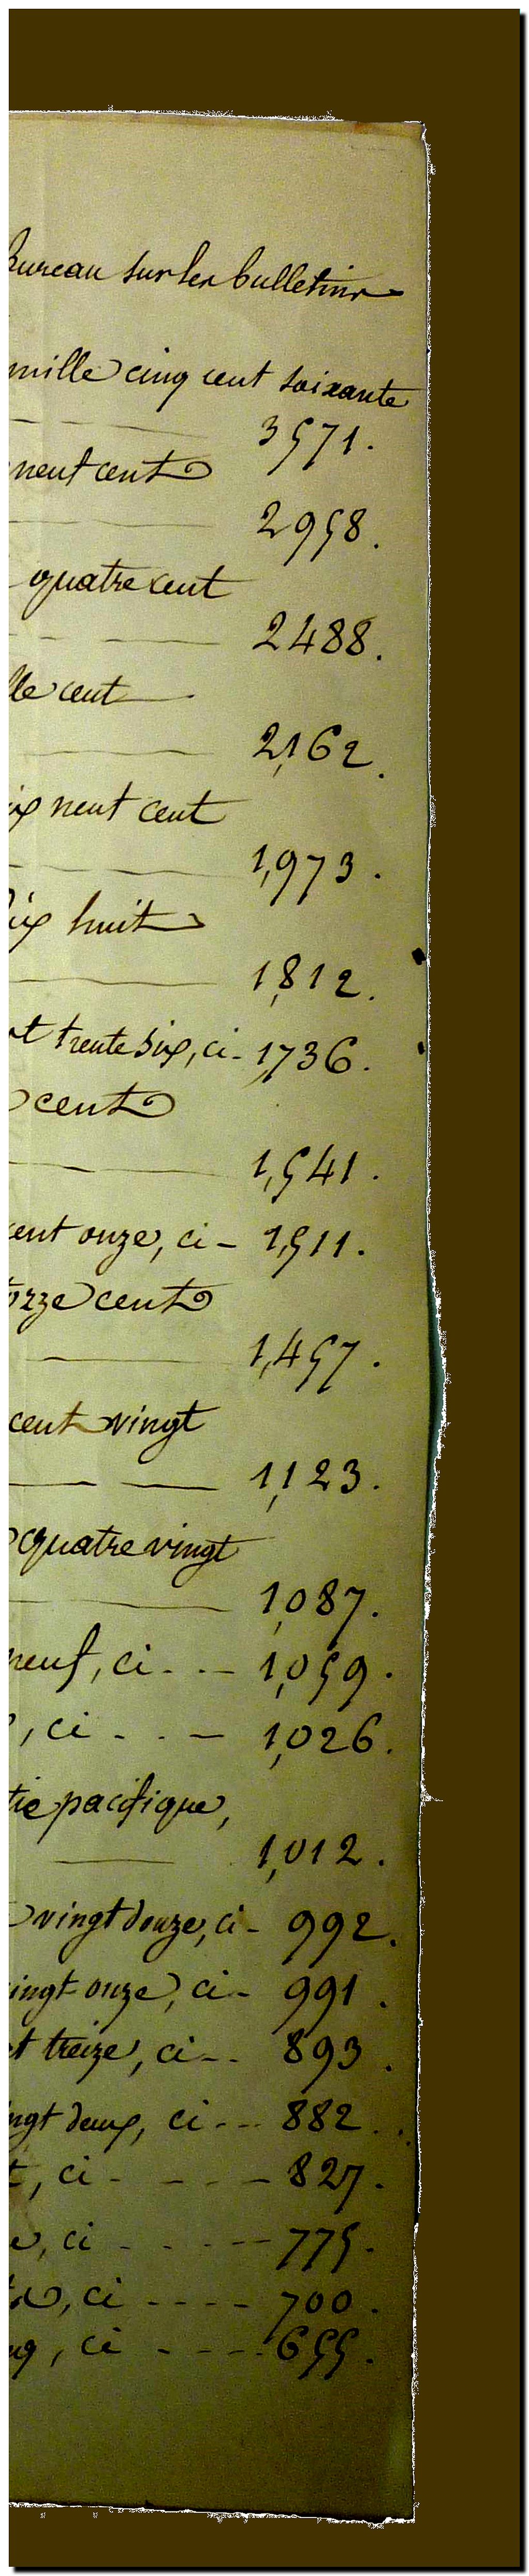 Bureau sur les bulletins
mille cinq cent soixante
3571.
neuf cent
2958.
quatre cent
2488.
lle cent
2,162.
ix neuf cent
1,973.
Dix huit
1,812.
nt trente Six, ci - 1,736.
cent
1,541.
cent onze, ci - 1,511.
orze cent
1,457.
cent vingt
1,123.
quatre vingt
1,087.
neuf, ci - - - 1,059.
, ci - - - 1,026.
tie pacifique,
1,012.
vingt douze, ci - 992.
ingt onze, ci - 991.
t treize, ci - - 893.
ngt deux, ci - - - 882.
t, ci - - - - 827.
e, ci - - - - 775.
, ci - - - - 700.
nq, ci - - - - 655.